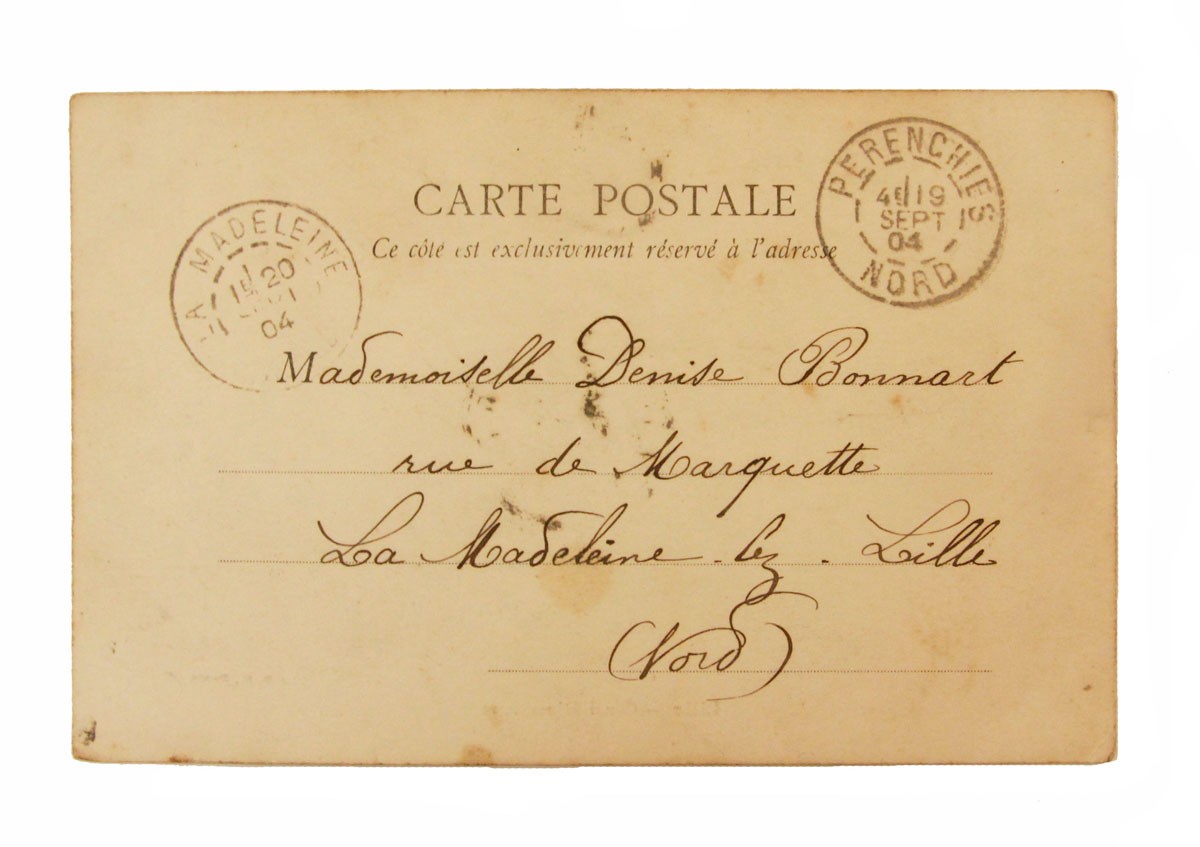 CARTE POSTALE
Ce côté est exclusivement réservé à l'adresse
LA MADELEINE
20
04
PERENCHIES
4E 19
SEPT
04
NORD
Mademoiselle Denise Bonnart
rue de Marquette
La Madeleine - lez - Lille
(Nord)